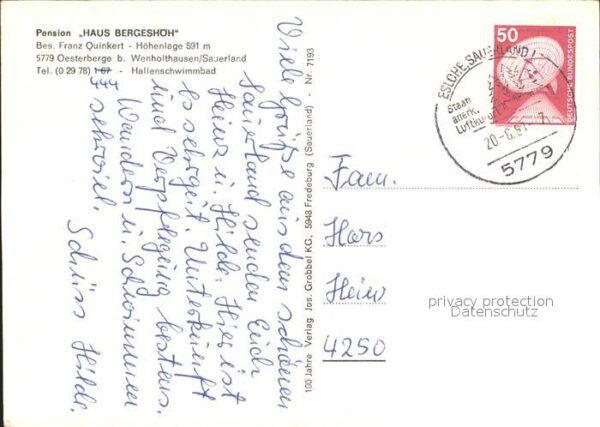 Pension „HAUS BERGESHÖH"
Bes. Franz Quinkert - Höhenlage 591 m
5779 Oesterberge b. Wenholthausen/Sauerland
Tel. (0 29 78) 167 - Hallenschwimmbad
Viele Grüße aus dem schönen
Sauerland senden Euch
Heinz u. Hilde. Hier ist
es sehr gut. Unterkunft
und Verpflegung bestens.
Wandern u. Schwimmen
sehr viel.
Schüss Hilde.
100 Jahre Verlag Jos. Grobbel KG, 5948 Fredeburg (Sauerland) - Nr. 7193
50
DEUTSCHE BUNDESPOST
ESLOHE, SAUERLAND 1
Staatl.
anerk.
Luftkurort
20.-6.81-7
5779
Fam.
Hans
4250
privacy protection
Datenschutz